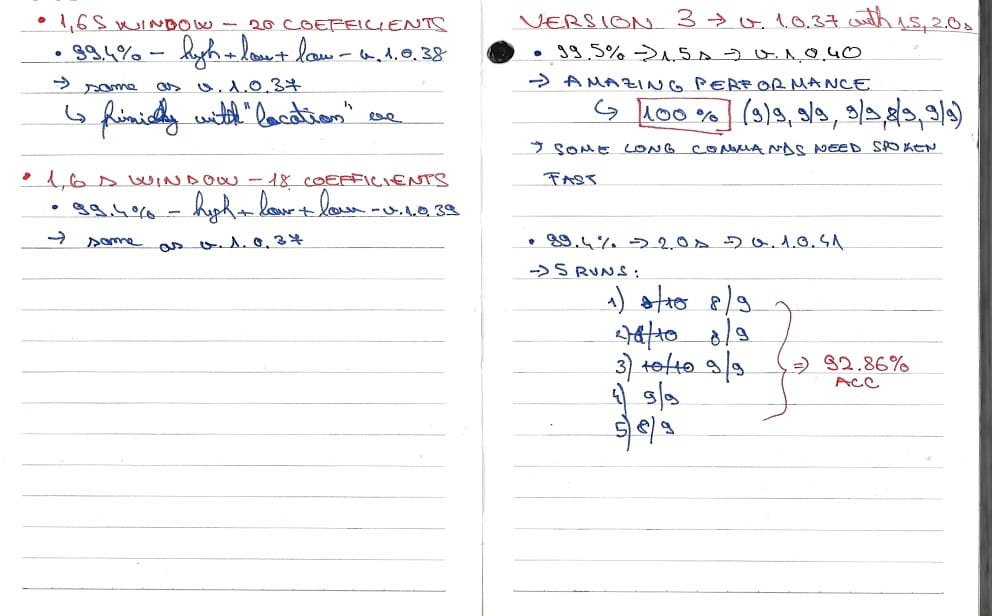 • 1,6 S WINDOW - 20 COEFFICIENTS
• 99.4% - high + low + low - v.1.0.38
→ same as v.1.0.37
↳ finicky with "location"
• 1,6 s WINDOW - 18 COEFFICIENTS
• 99.4% - high + low + low - v.1.0.39
→ same as v.1.0.37
VERSION 3 → v.1.0.37 with 1.5, 2.0s
• 99.5% → 1.5 s → v.1.0.40
→ AMAZING PERFORMANCE
↳ 100% (9/9, 9/9, 9/9, 8/9, 9/9)
→ SOME LONG COMMANDS NEED SPOKEN
FAST
• 99.4% → 2.0 s → v.1.0.41
→ 5 RUNS:
1) 8/10 8/9
2) /10 8/9
3) 10/10 9/9 ⇒ 92.86%
ACC
4) 9/9
5) 8/9